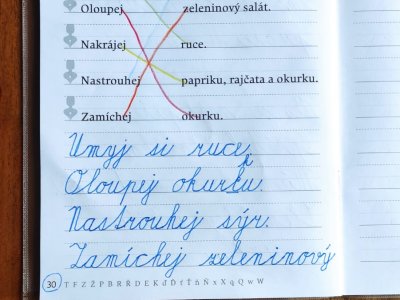 Oloupej zeleninový salát.
Nakrájej ruce.
Nastrouhej papriku, rajčata a okurku.
Zamíchej okurku.
Umyj si ruce.
Oloupej okurku.
Nastrouhej sýr.
Zamíchej zeleninový
30 T F Z Ž P B R Ř D E K ď Ď ť Ť ň Ň x X q Q w W